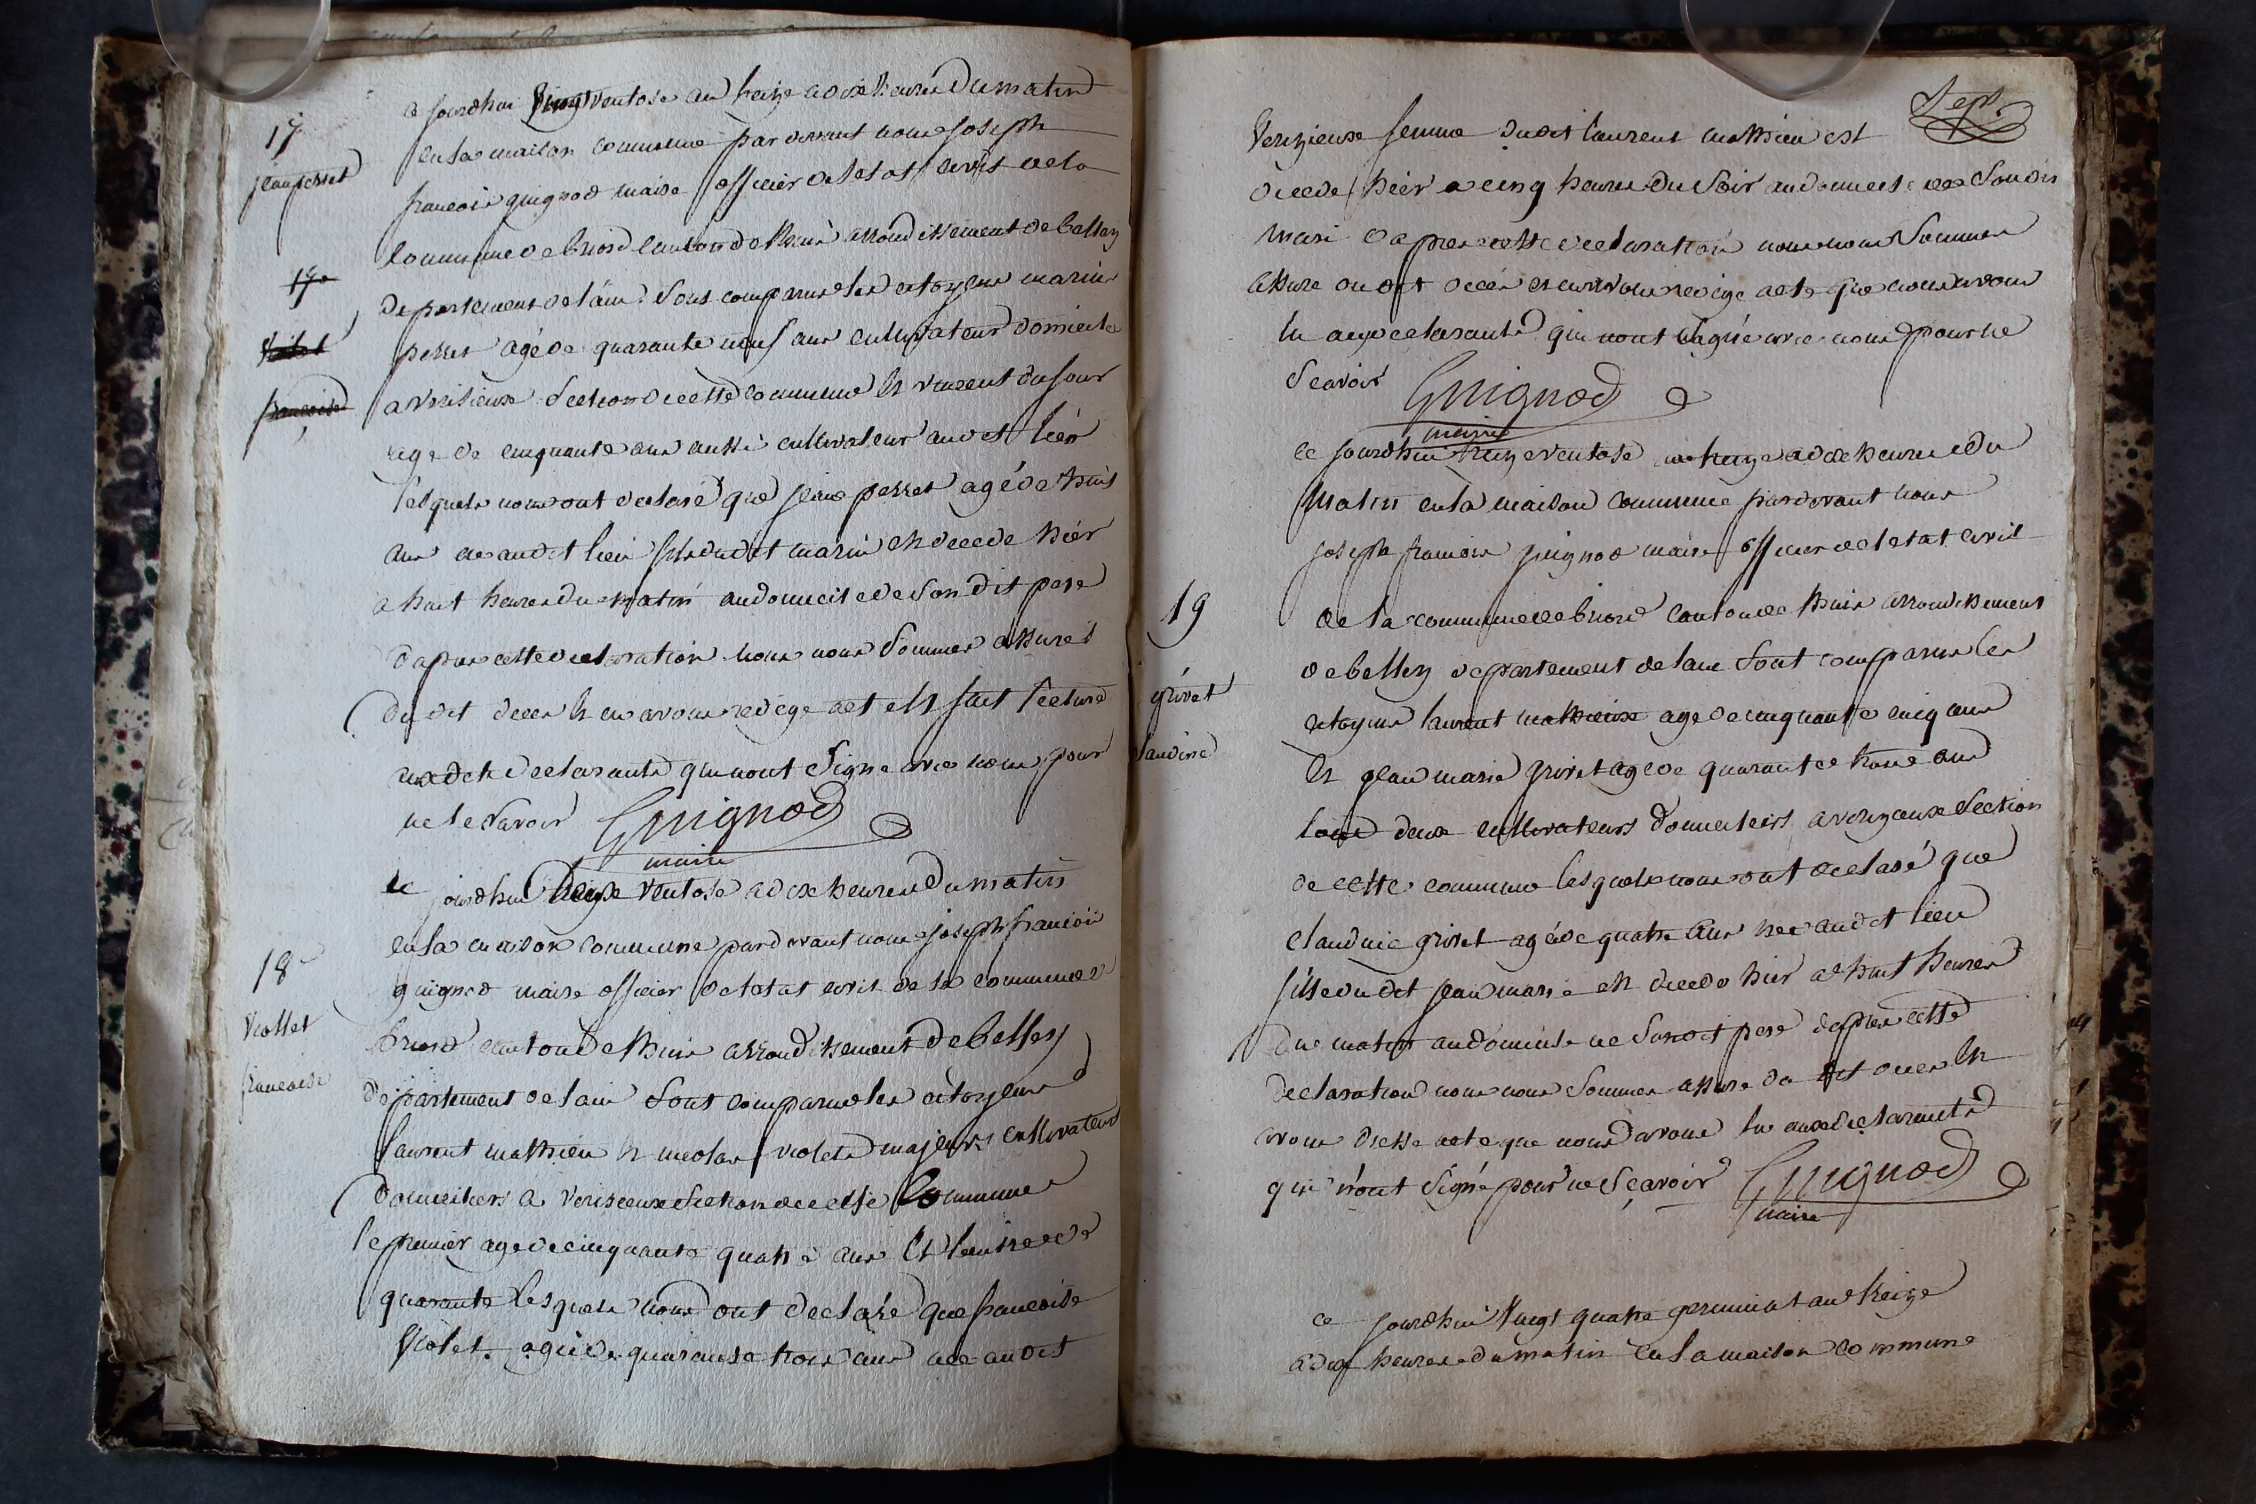 17
jean perret
ce jourdhui vingt ventose an treize a dix heures du matin
en la maison commune par devant nous joseph
francois guignod maire officier de letat civil de la
commune de briord canton de lhuis arrondissement de belley
departement de lain Sont comparus les citoyens marin
perret agé de quarante neuf ans cultivateur domicilié
a verisieux Section de cette commune et vincent dufour
age de cinquante ans aussi cultivateur audit lieu
lesquels nous ont declaré que jean perret agé de huit
ans né audit lieu fils dudit marin est decede hier
a huit heures du matin au domicile de Son dit pere
dapres cette declaration nous nous Sommes assures
du dit deces et en avons redige acte et fait lecture
aux dits declarants qui nont Signe avec nous pour
ne le Savoir Guignod
maire
17
violet
francoise
18
viollet
francoise
ce jourdhui ventose a dix heures du matin
en la maison commune pardevant nous joseph francois
guignod maire officier de letat civil de la commune de
briord canton de lhuis arrondissement de belley
departement de lain Sont comparus les citoyens
laurent mathieu et nicolas violet majeurs cultivateurs
domiciliers a verisieux Section de cette commune
le premier age de cinquante quatre ans et lautre de
quarante lesquels nous ont declaré que francoise
violet agée de quarante trois ans née audit
Sept
verizieux femme dudit laurent mathieu est
decede hier a cinq heures du Soir au domicile de Son dit
mari dapres cette declaration nous nous Sommes
assure du dit deces et en avons redige acte que nous avons
lu aux declarants qui nont Signé avec nous pour ne
Scavoir Guignod
maire
ce jourdhui treize ventose an treize a dix heures du
matin en la maison commune pardevant nous
joseph francois guignod maire officier de letat civil
19
grivet
claudine
de la commune de briord canton de lhuis arrondissement
de belley departement de lain Sont comparus les
citoyens laurent mathieux age de cinquante cinq ans
et jean marie grivet age de quarante trois ans
tous deux cultivateurs domiciliers a verizieux Section
de cette commune lesquels nous ont declaré que
claudine grivet agée de quatre ans née audit lieu
fille du dit jean marie est decede hier a huit heures
du matin au domicile de Son dit pere dapres cette
declaration nous nous Sommes assure du dit deces et
avons dresse acte que nous avons lu aux declarants
qui n'ont Signé pour ne Sçavoir Guignod
maire
ce jourdhui vingt quatre germinal an treize
a dix heures du matin en la maison commune